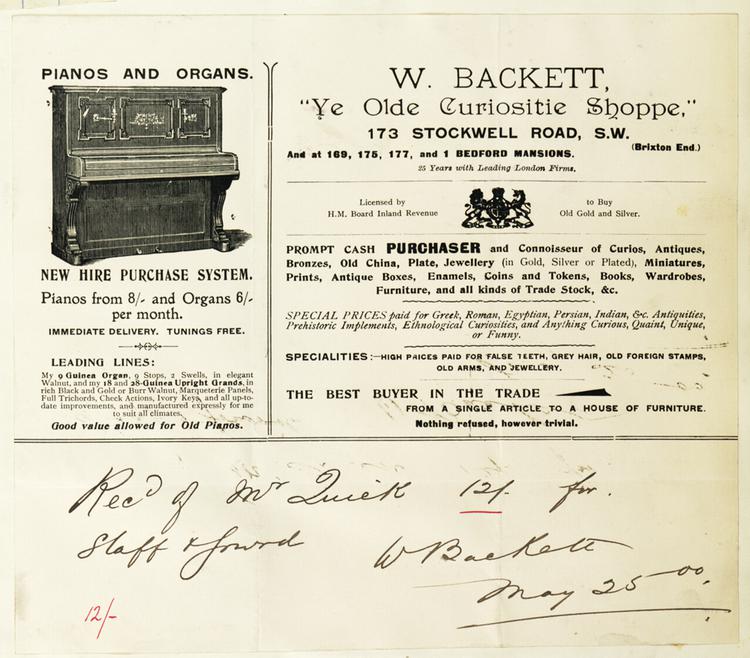 PIANOS AND ORGANS.
NEW HIRE PURCHASE SYSTEM.
Pianos from 8/- and Organs 6/-
per month.
IMMEDIATE DELIVERY. TUNINGS FREE.
LEADING LINES:
My 9 Guinea Organ, 9 Stops, 2 Swells, in elegant
Walnut, and my 18 and 28-Guinea Upright Grands, in
rich Black and Gold or Burr Walnut, Marqueterie Panels,
Full Trichords, Check Actions, Ivory Keys, and all up-to-
date improvements, and manufactured expressly for me
to suit all climates.
Good value allowed for Old Pianos.
W. BACKETT,
"Ye Olde Curiositie Shoppe,"
173 STOCKWELL ROAD, S.W.
(Brixton End.)
And at 169, 175, 177, and 1 BEDFORD MANSIONS.
25 Years with Leading London Firms.
Licensed by
H.M. Board Inland Revenue
to Buy
Old Gold and Silver.
PROMPT CASH PURCHASER and Connoisseur of Curios, Antiques,
Bronzes, Old China, Plate, Jewellery (in Gold, Silver or Plated), Miniatures,
Prints, Antique Boxes, Enamels, Coins and Tokens, Books, Wardrobes,
Furniture, and all kinds of Trade Stock, &c.
SPECIAL PRICES paid for Greek, Roman, Egyptian, Persian, Indian, &c. Antiquities,
Prehistoric Implements, Ethnological Curiosities, and Anything Curious, Quaint, Unique,
or Funny.
SPECIALITIES:—HIGH PRICES PAID FOR FALSE TEETH, GREY HAIR, OLD FOREIGN STAMPS,
OLD ARMS, AND JEWELLERY.
THE BEST BUYER IN THE TRADE
FROM A SINGLE ARTICLE TO A HOUSE OF FURNITURE.
Nothing refused, however trivial.
Recd of Mr Quick 12/- for.
Staff & Sword
W Backett
May 25 00.
12/-